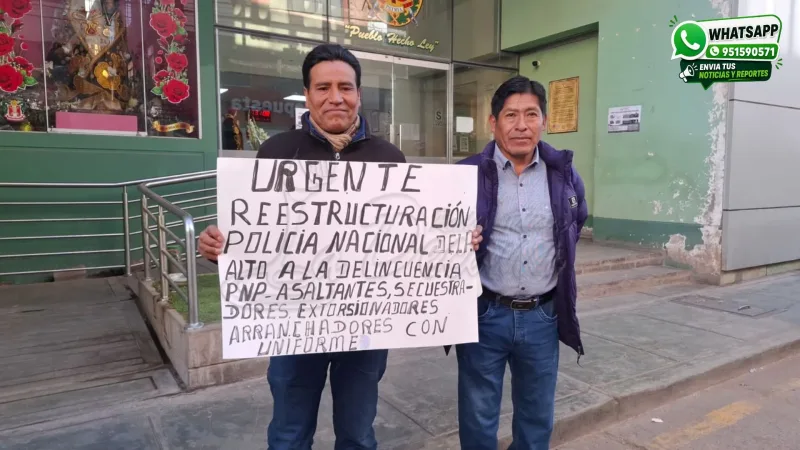 "Pueblo Hecho Ley"
WHATSAPP
951590571
ENVIA TUS
NOTICIAS Y REPORTES
URGENTE
REESTRUCTURACIÓN
POLICIA NACIONAL DEL
ALTO A LA DELINCUENCIA
PNP- ASALTANTES, SECUESTRA-
DORES EXTORSIONADORES
ARRANCHADORES CON
UNIFORME